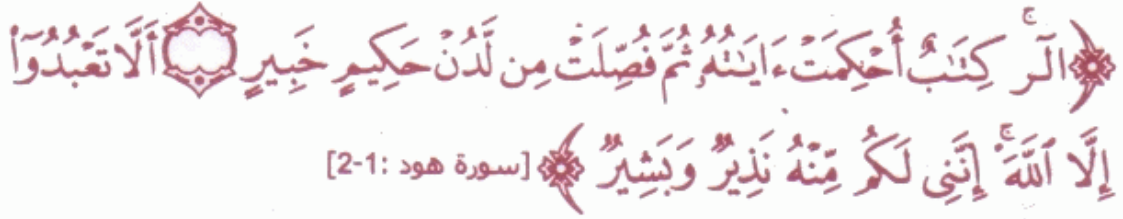 ﴿الٓرۚ كِتَٰبٌ أُحۡكِمَتۡ ءَايَٰتُهُۥ ثُمَّ فُصِّلَتۡ مِن لَّدُنۡ حَكِيمٍ خَبِيرٍ ۝ أَلَّا تَعۡبُدُوٓاْ
إِلَّا ٱللَّهَۚ إِنَّنِي لَكُم مِّنۡهُ نَذِيرٞ وَبَشِيرٞ﴾ [سورة هود :1-2]